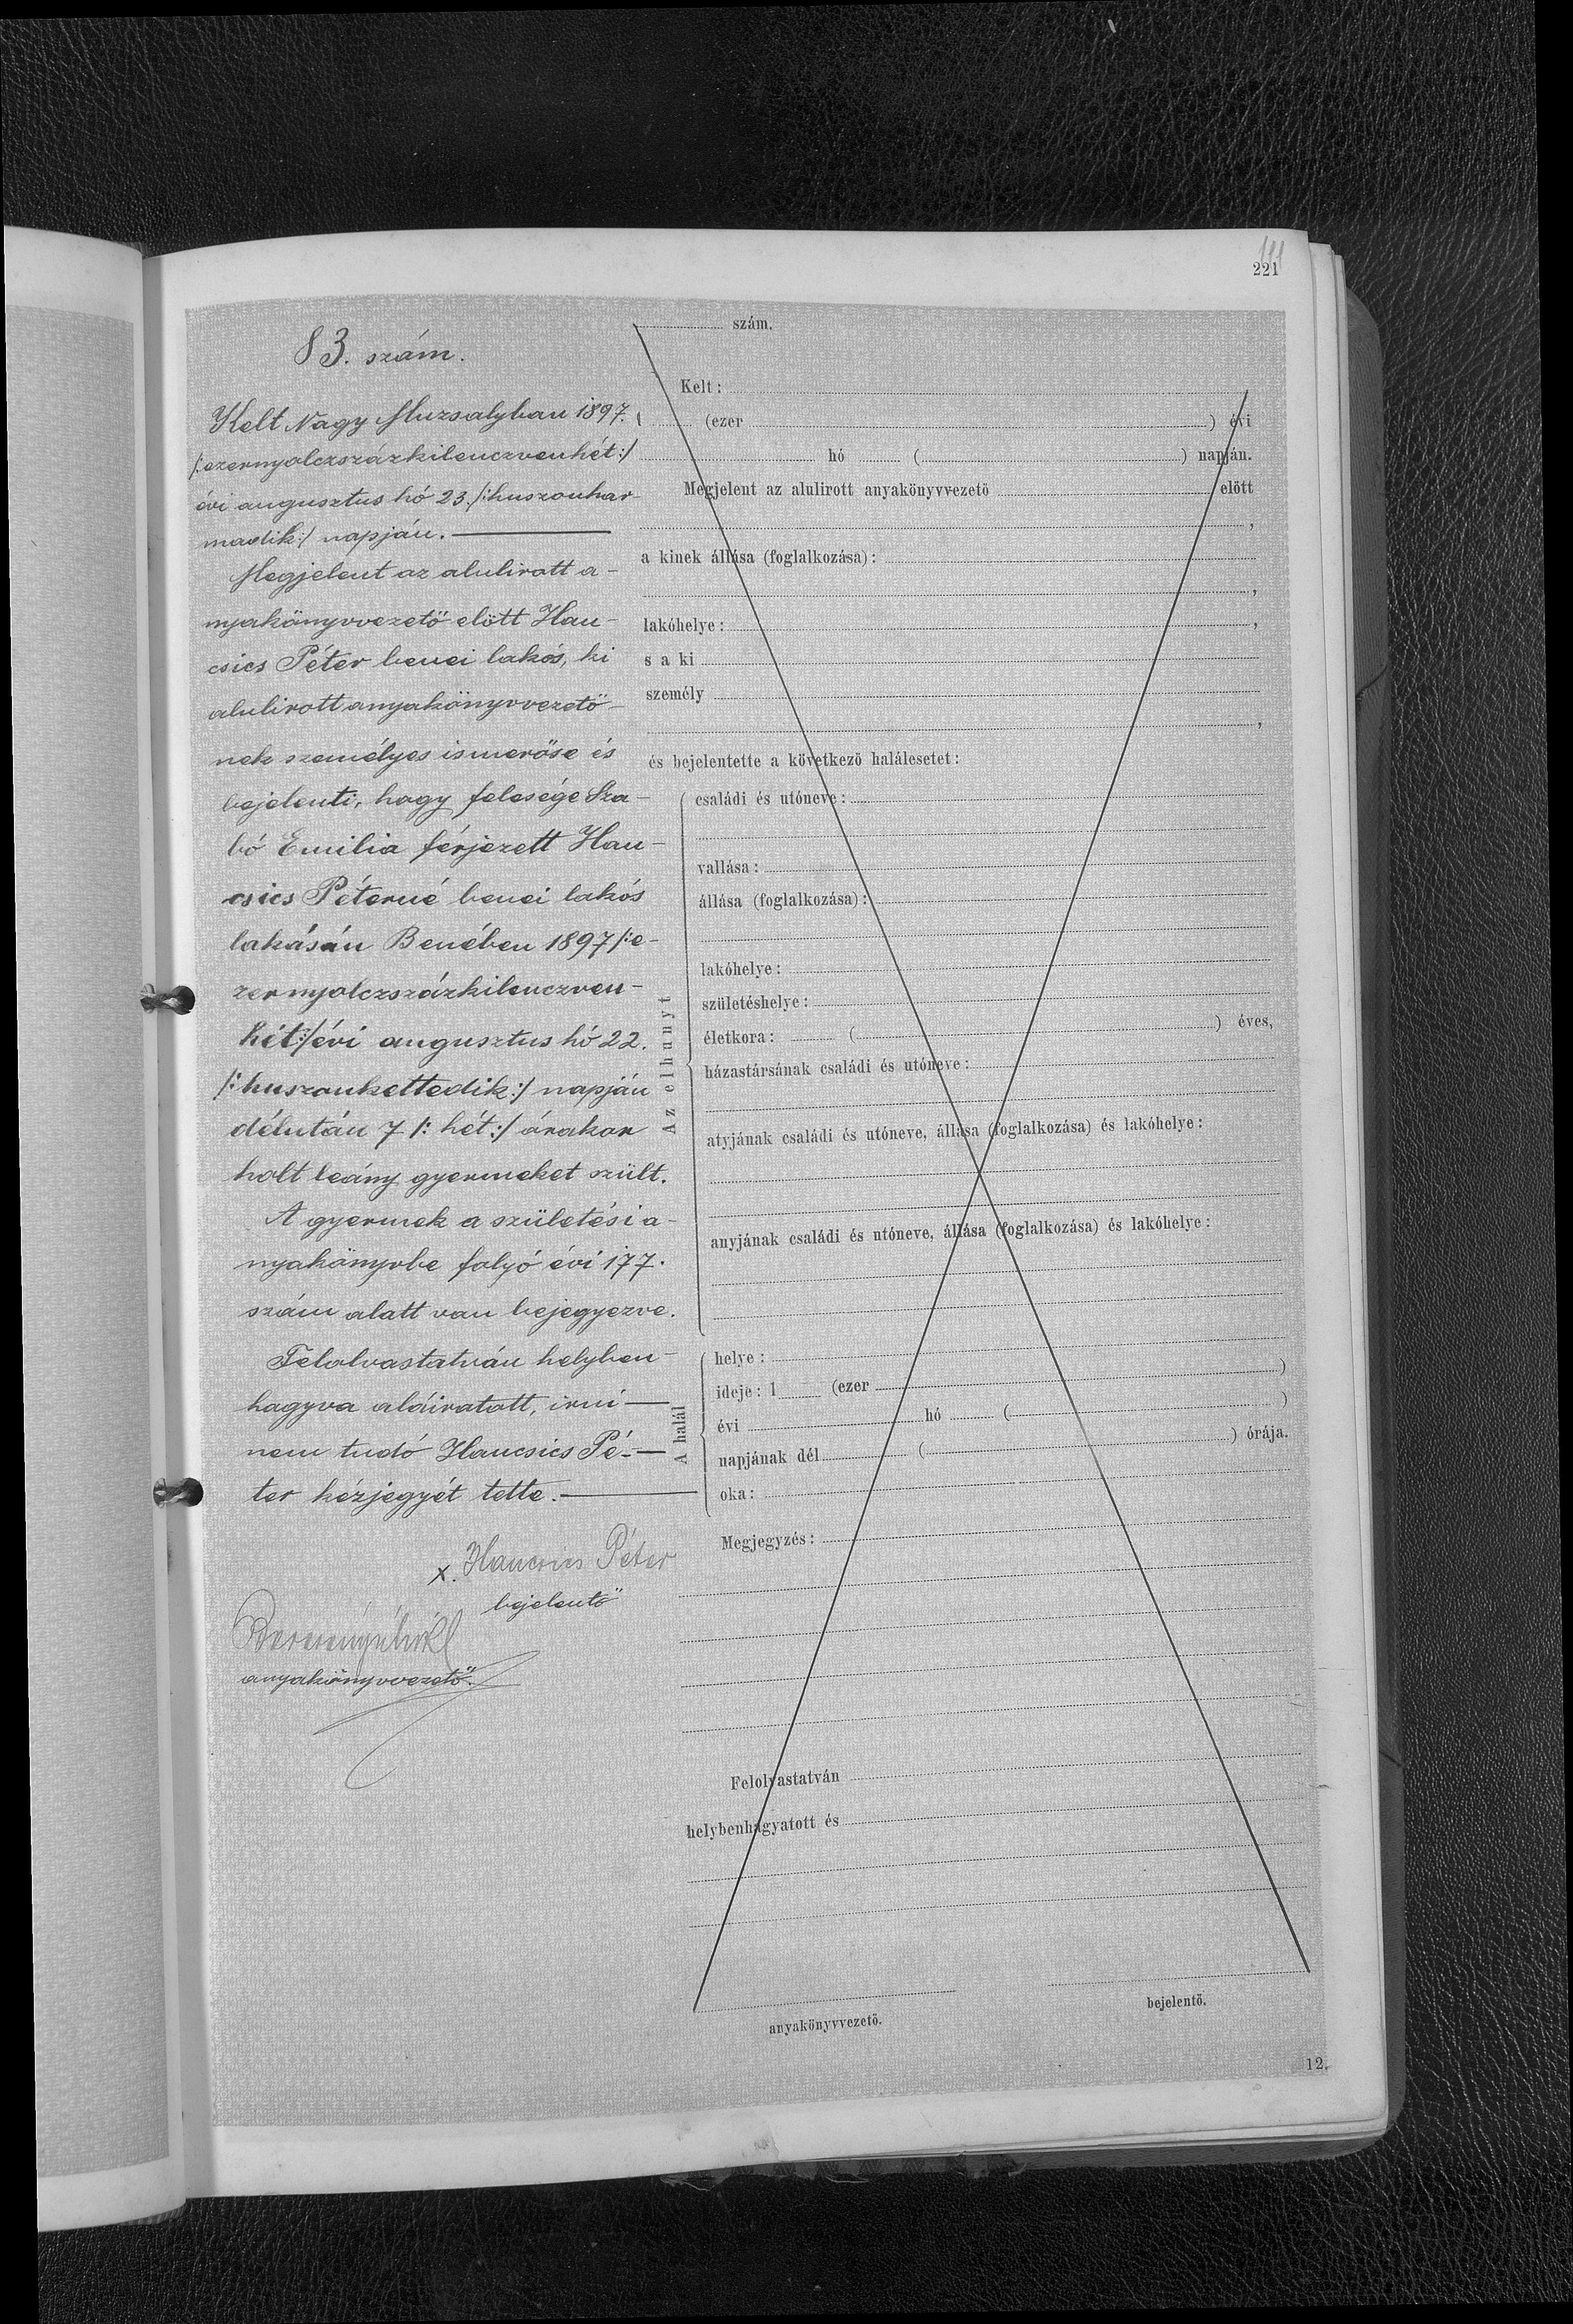 111
221
83. szám.
Kelt Nagy Muzsalyban 1897.
/:ezernyolczszázkilenczvenhét:/
évi augusztus hó 23. /:huszonhar-
madik:/ napján.
Megjelent az alulirott a-
nyakönyvvezető előtt Han-
csics Péter benei lakós, ki
alulirott anyakönyvvezető-
nek személyes ismerőse és
bejelenti, hogy felesége Sza-
bó Emilia férjezett Han-
csics Péterné benei lakós
lakásán Benében 1897 /:e-
zernyolczszázkilenczven-
hét:/ évi augusztus hó 22.
/:huszonkettedik:/ napján
délután 7 /: hét:/ órakor
holt leány gyermeket szült.
A gyermek a születési a-
nyakönyvbe folyó évi 177.
szám alatt van bejegyezve.
Felolvastatván helyben-
hagyva aláiratott, irni
nem tudó Hancsics Pé-
ter kézjegyét tette.
x. Hancsics Péter
bejelentő
anyakönyvvezető.
szám.
Kelt:
(ezer ) évi
hó ( ) napján.
Megjelent az alulirott anyakönyvvezető előtt
,
a kinek állása (foglalkozása):
,
lakóhelye: ,
s a ki
személy
,
és bejelentette a következő halálesetet:
Az elhunyt
családi és utóneve:
vallása:
állása (foglalkozása):
lakóhelye:
születéshelye:
életkora: ( ) éves,
házastársának családi és utóneve:
atyjának családi és utóneve, állása (foglalkozása) és lakóhelye:
anyjának családi és utóneve, állása (foglalkozása) és lakóhelye:
A halál
helye:
ideje: 1 (ezer )
évi hó ( )
napjának dél ( ) órája.
oka:
Megjegyzés:
Felolvastatván
helybenhagyatott és
anyakönyvvezető.
bejelentő.
12.